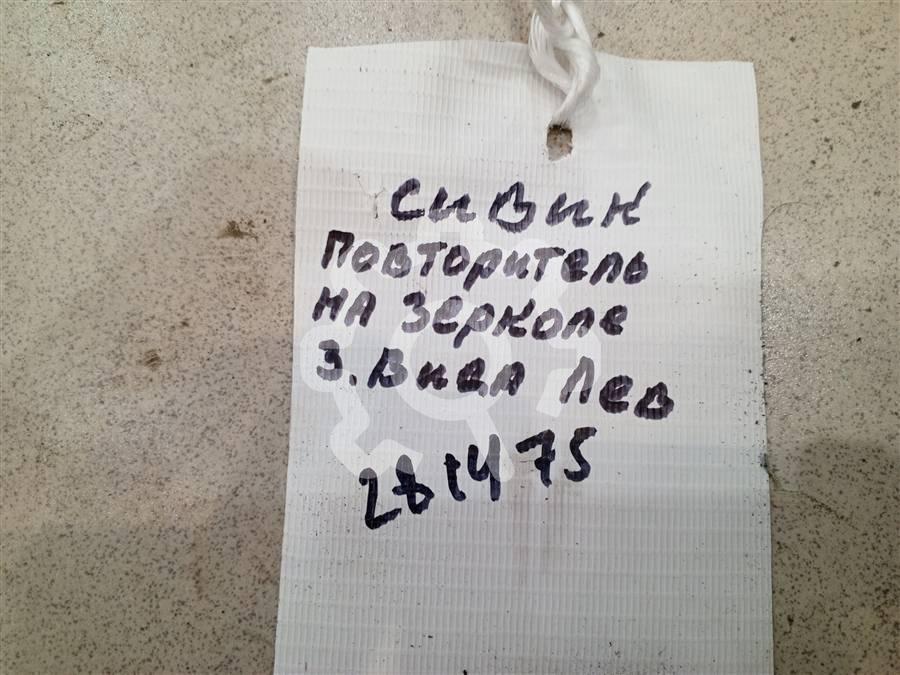 Сивик
Повторитель
на зеркале
З.Вида Лев
281475